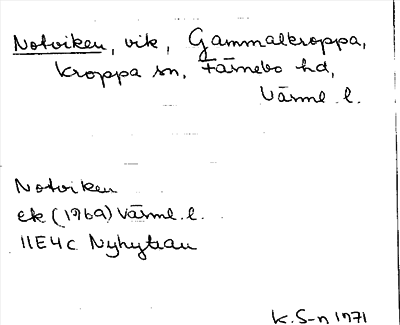 Notviken, vik, Gammalkroppa,
Kroppa sn, Färnebo hd,
Värml. l.
Notviken
ek (1969) Värml. l.
11E4c Nyhyttan
K. S-n 1971